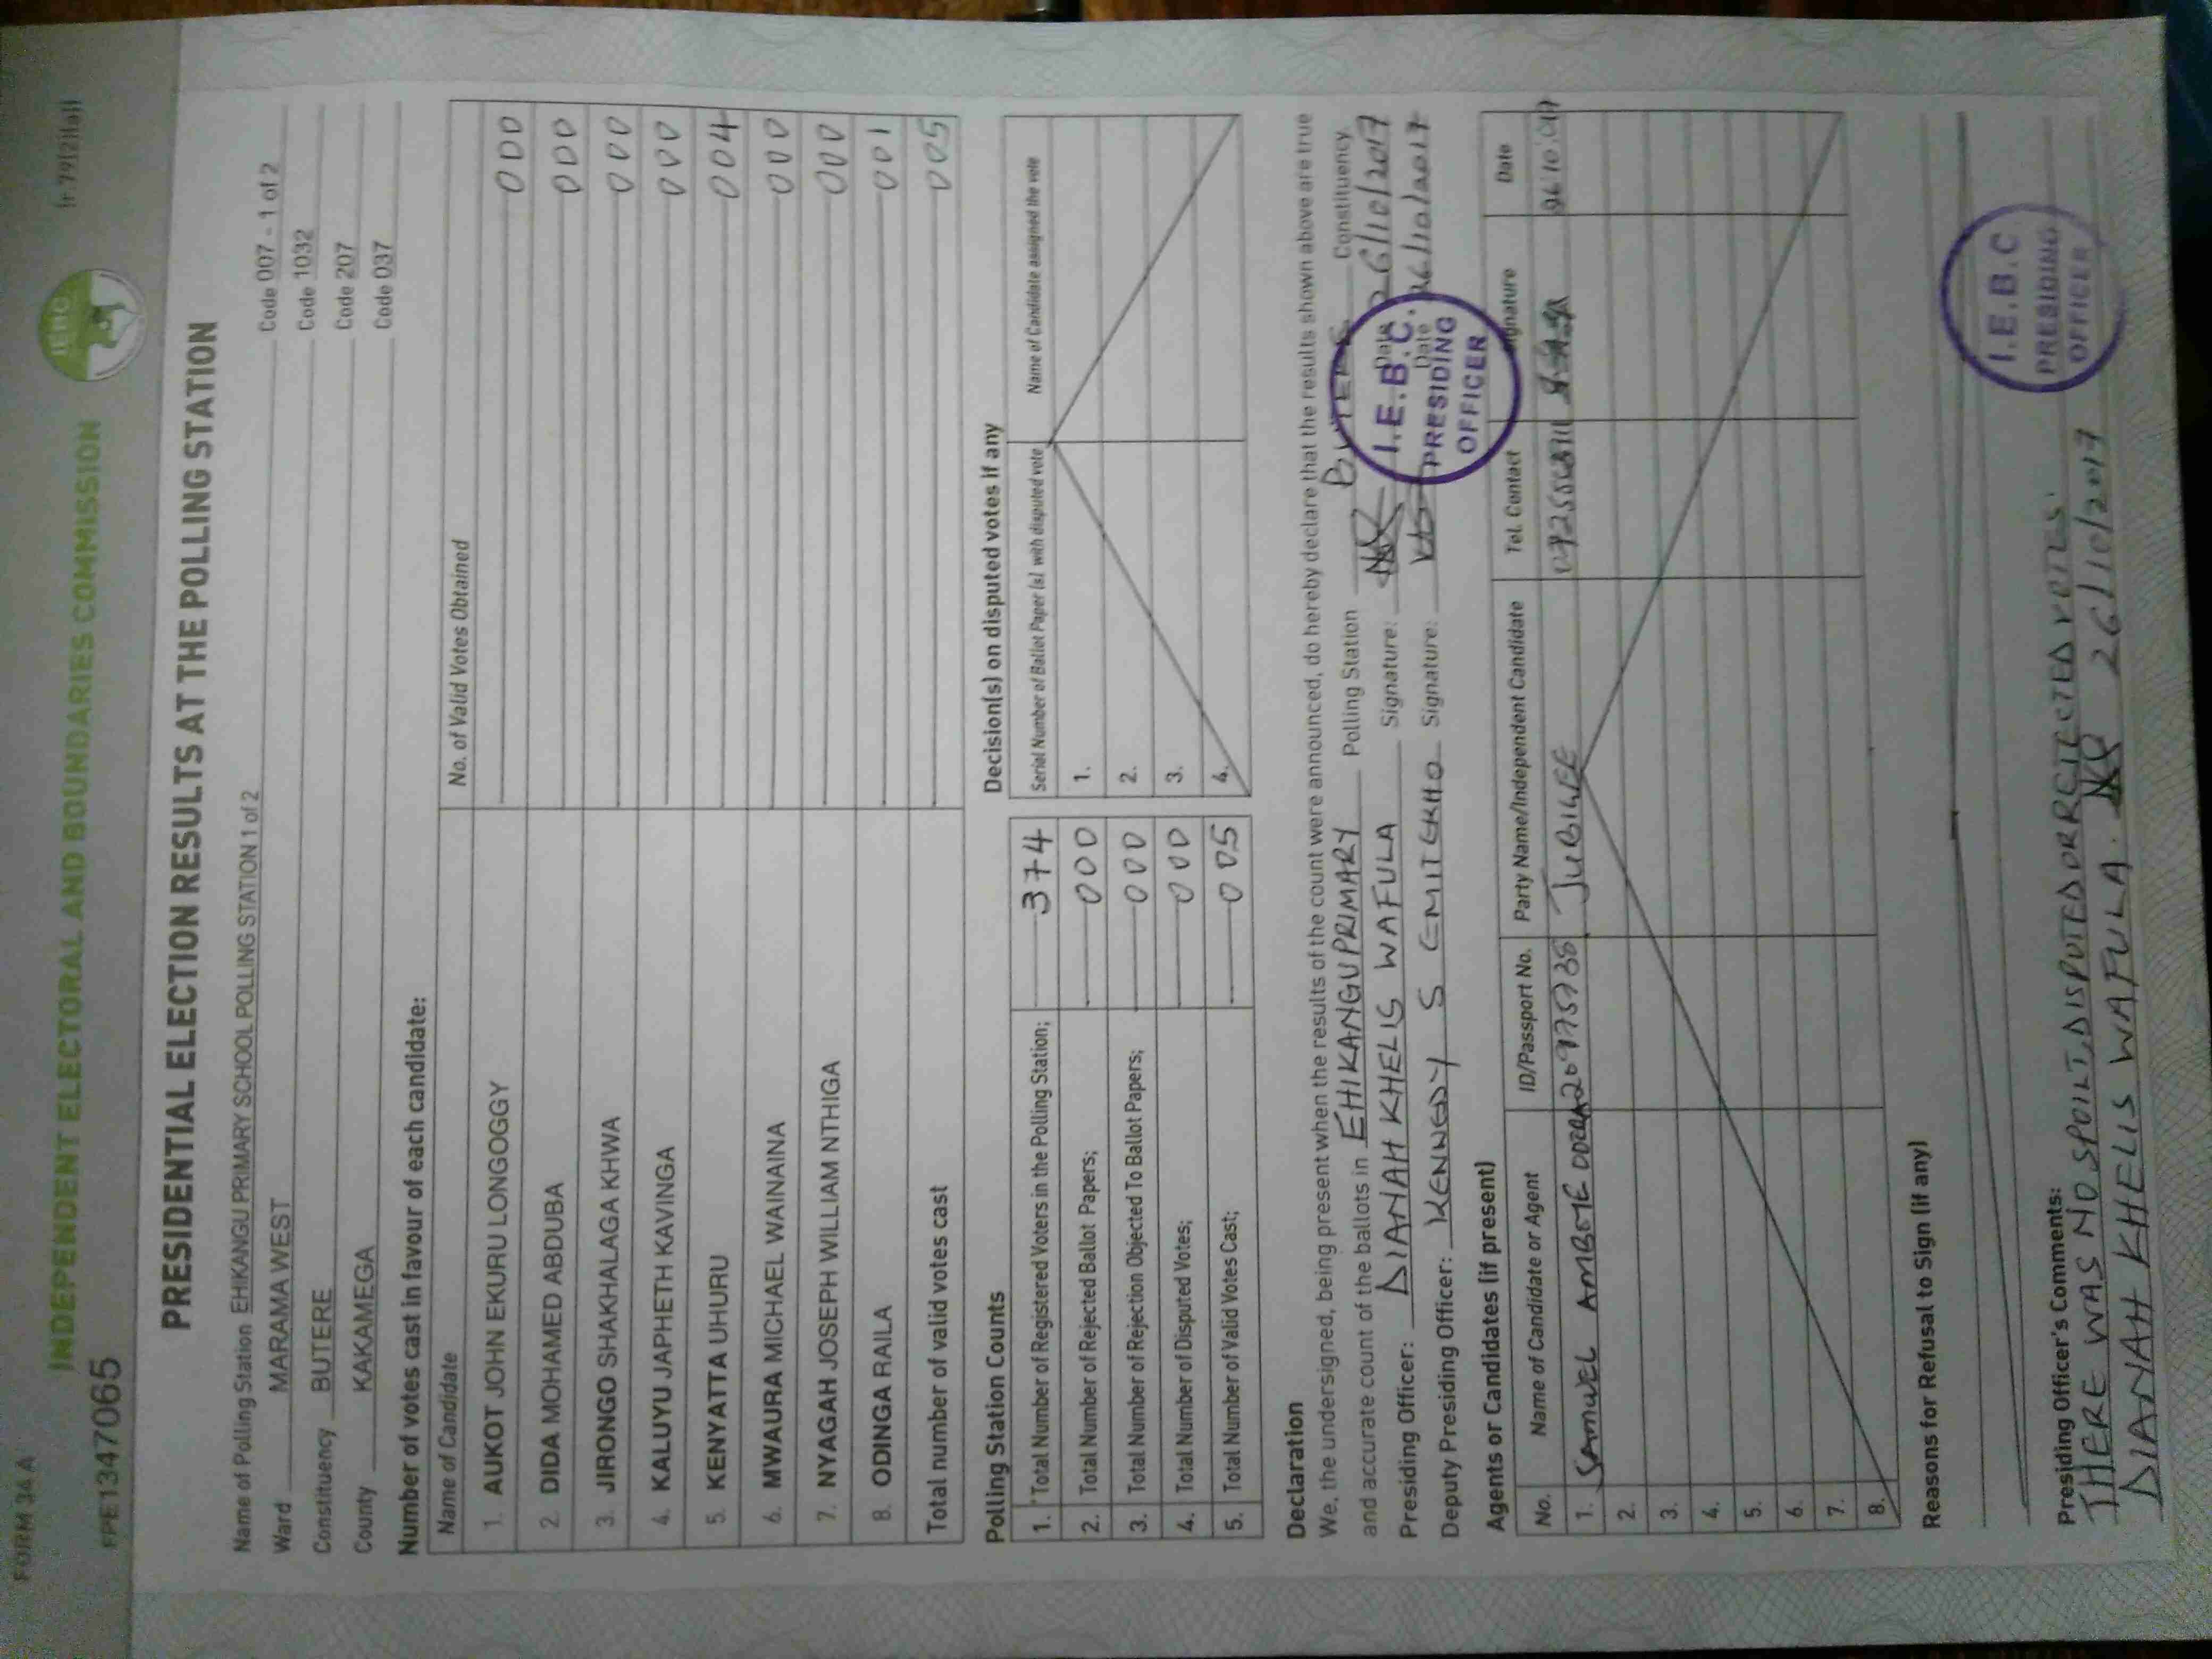 FORM 34 A
(r.79(2)(a))
IEBC
INDEPENDENT ELECTORAL AND BOUNDARIES COMMISSION
PPE1347065
PRESIDENTIAL ELECTION RESULTS AT THE POLLING STATION
Name of Polling Station EHIKANGU PRIMARY SCHOOL POLLING STATION 1 of 2 Code 007 - 1 of 2
Ward MARAMA WEST Code 1032
Constituency BUTERE Code 207
County KAKAMEGA Code 037
Number of votes cast in favour of each candidate:
Name of Candidate No. of Valid Votes Obtained
1. AUKOT JOHN EKURU LONGOGGY 000
2. DIDA MOHAMED ABDUBA 000
3. JIRONGO SHAKHALAGA KHWA 000
4. KALUYU JAPHETH KAVINGA 000
5. KENYATTA UHURU 004
6. MWAURA MICHAEL WAINAINA 000
7. NYAGAH JOSEPH WILLIAM NTHIGA 000
8. ODINGA RAILA 001
Total number of valid votes cast 005
Polling Station Counts
1. Total Number of Registered Voters in the Polling Station; 374
2. Total Number of Rejected Ballot Papers; 000
3. Total Number of Rejection Objected To Ballot Papers; 000
4. Total Number of Disputed Votes; 000
5. Total Number of Valid Votes Cast; 005
Decision(s) on disputed votes if any
Serial Number of Ballot Paper (s) with disputed vote Name of Candidate assigned the vote
1.
2.
3.
4.
Declaration
We, the undersigned, being present when the results of the count were announced, do hereby declare that the results shown above are true
and accurate count of the ballots in EHIKANGU PRIMARY Polling Station BUTERE Constituency
Presiding Officer: DIANAH KHELIS WAFULA Signature: Date 26/10/2017
Deputy Presiding Officer: KENNEDY S EMITEKHO Signature: Date 26/10/2017
I.E.B.C.
PRESIDING
OFFICER
Agents or Candidates (if present)
No. Name of Candidate or Agent ID/Passport No. Party Name/Independent Candidate Tel. Contact Signature Date
1. SAMUEL AMBOTE JUBILEE
2.
3.
4.
5.
6.
7.
8.
Reasons for Refusal to Sign (if any)
Presiding Officer's Comments:
THERE WAS NO SPOILT, DISPUTED OR REJECTED VOTES.
DIANAH KHELIS WAFULA. 26/10/2017
I.E.B.C
PRESIDING
OFFICER